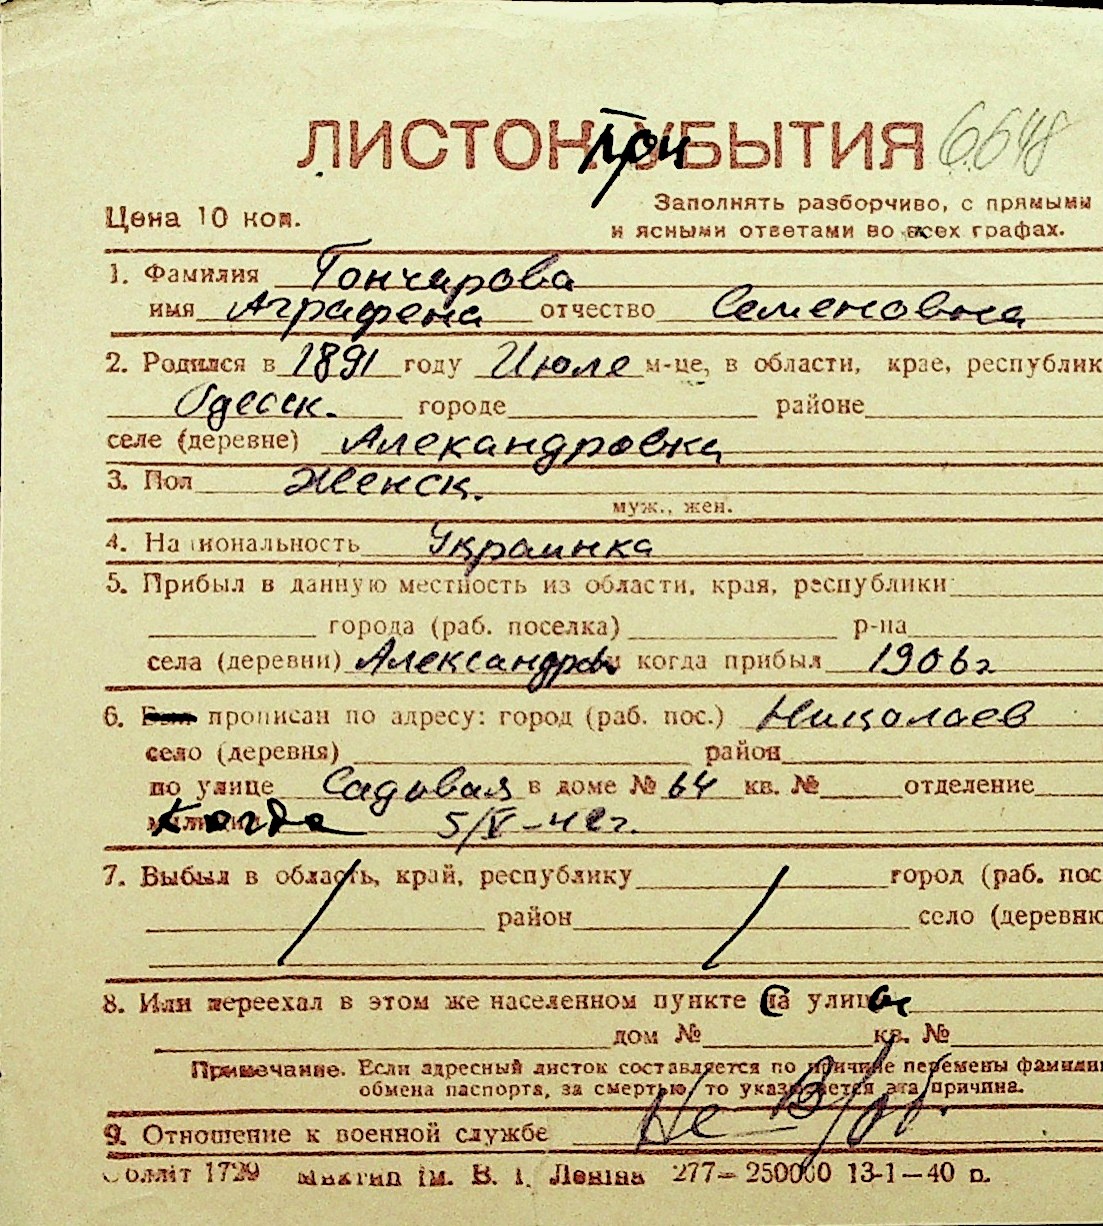 ЛИСТОК При УБЫТИЯ 6648
Цена 10 коп.
Заполнять разборчиво, с прямыми
и ясными ответами во всех графах.
1. Фамилия Гончарова
имя Аграфена отчество Семеновна
2. Родился в 1891 году Июле м-це, в области, крае, республик
Одесск. городе районе
селе (деревне) Александровка
3. Пол Женск.
муж., жен.
4. Национальность Украинка
5. Прибыл в данную местность из области, края, республики
города (раб. поселка) р-на
села (деревни) Александров и когда прибыл 1906 г
6. прописан по адресу: город (раб. пос.) Николаев
село (деревня) район
по улице Садовая в доме № 64 кв. № отделение
Когда 5/V-42г.
7. Выбыл в область, край, республику город (раб. пос
район село (деревню
8. Или переехал в этом же населенном пункте с улицы
дом № кв. №
Примечание. Если адресный листок составляется по причине перемены фамилии
обмена паспорта, за смертью, то указывается эта причина.
9. Отношение к военной службе Не
1729 ім. В. І. Леніна 277—250000 13-1—40 р.